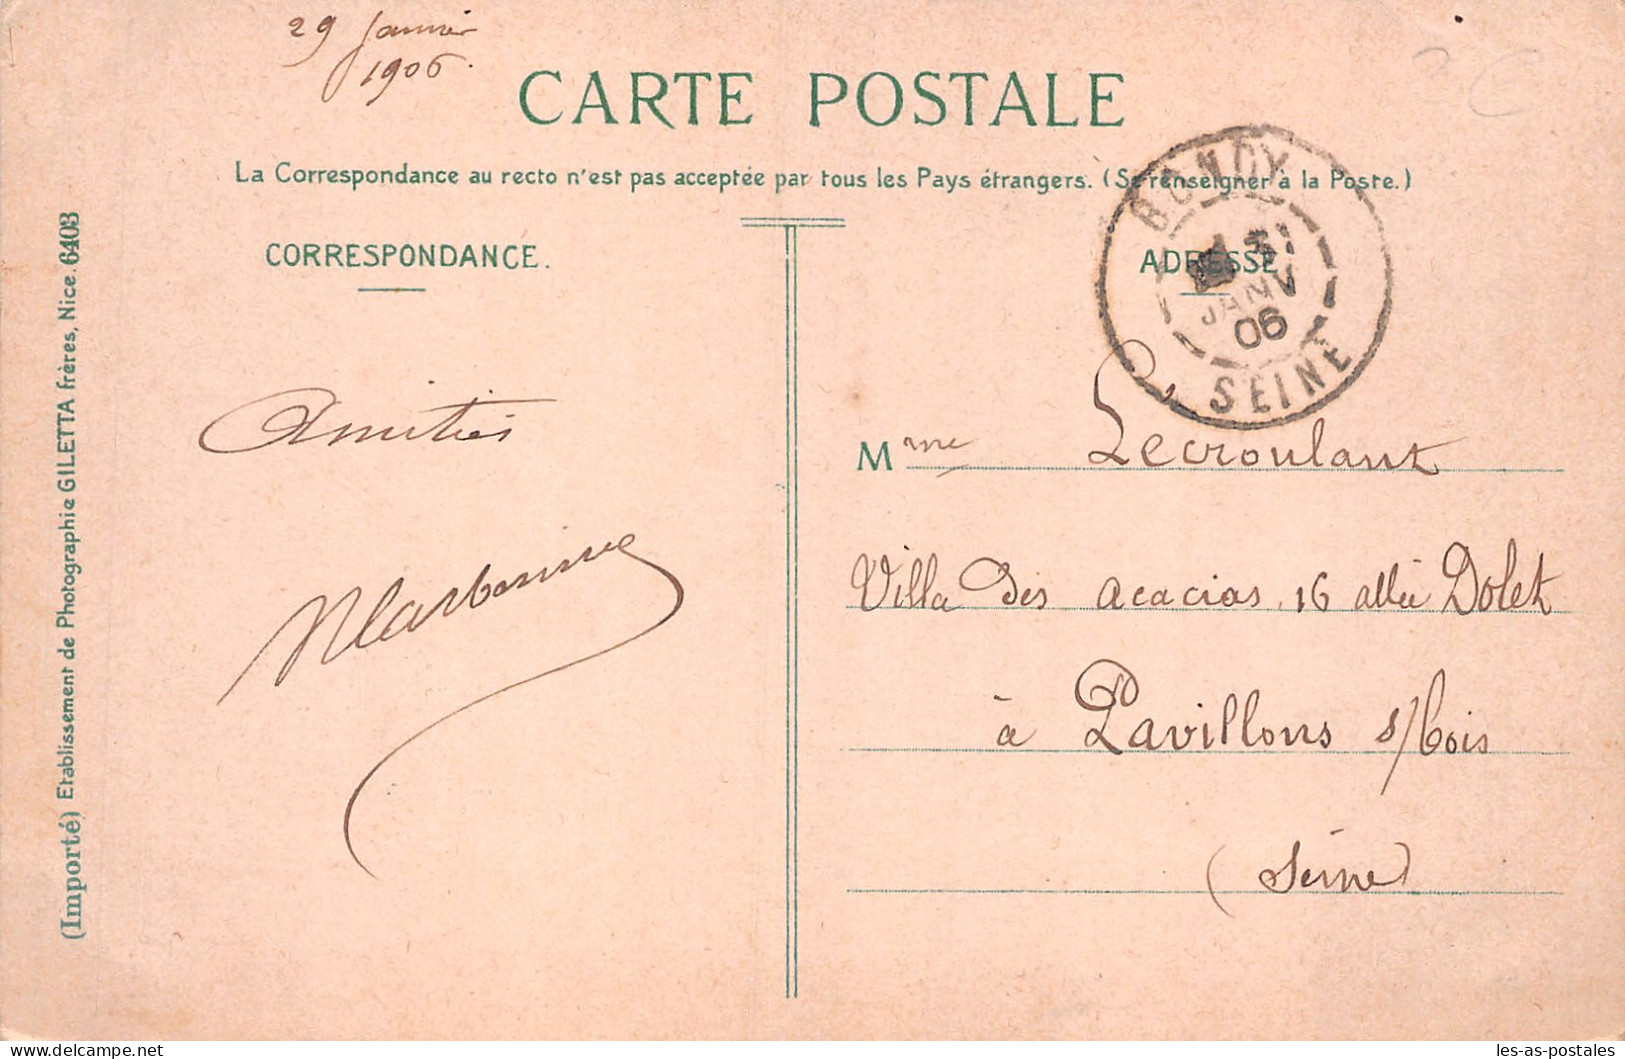 29 Janvier
1906.
CARTE POSTALE
La Correspondance au recto n'est pas acceptée par tous les Pays étrangers. (Se renseigner à la Poste.)
CORRESPONDANCE.
ADRESSE
BONDY
JANV
06
SEINE
Amitiés
Mme Lecroulant
Villa des acacias, 16 allée Dolet
à Pavillons s/bois
(Seine)
(Importé) Etablissement de Photographie GILETTA frères, Nice. 6403
les-as-postales